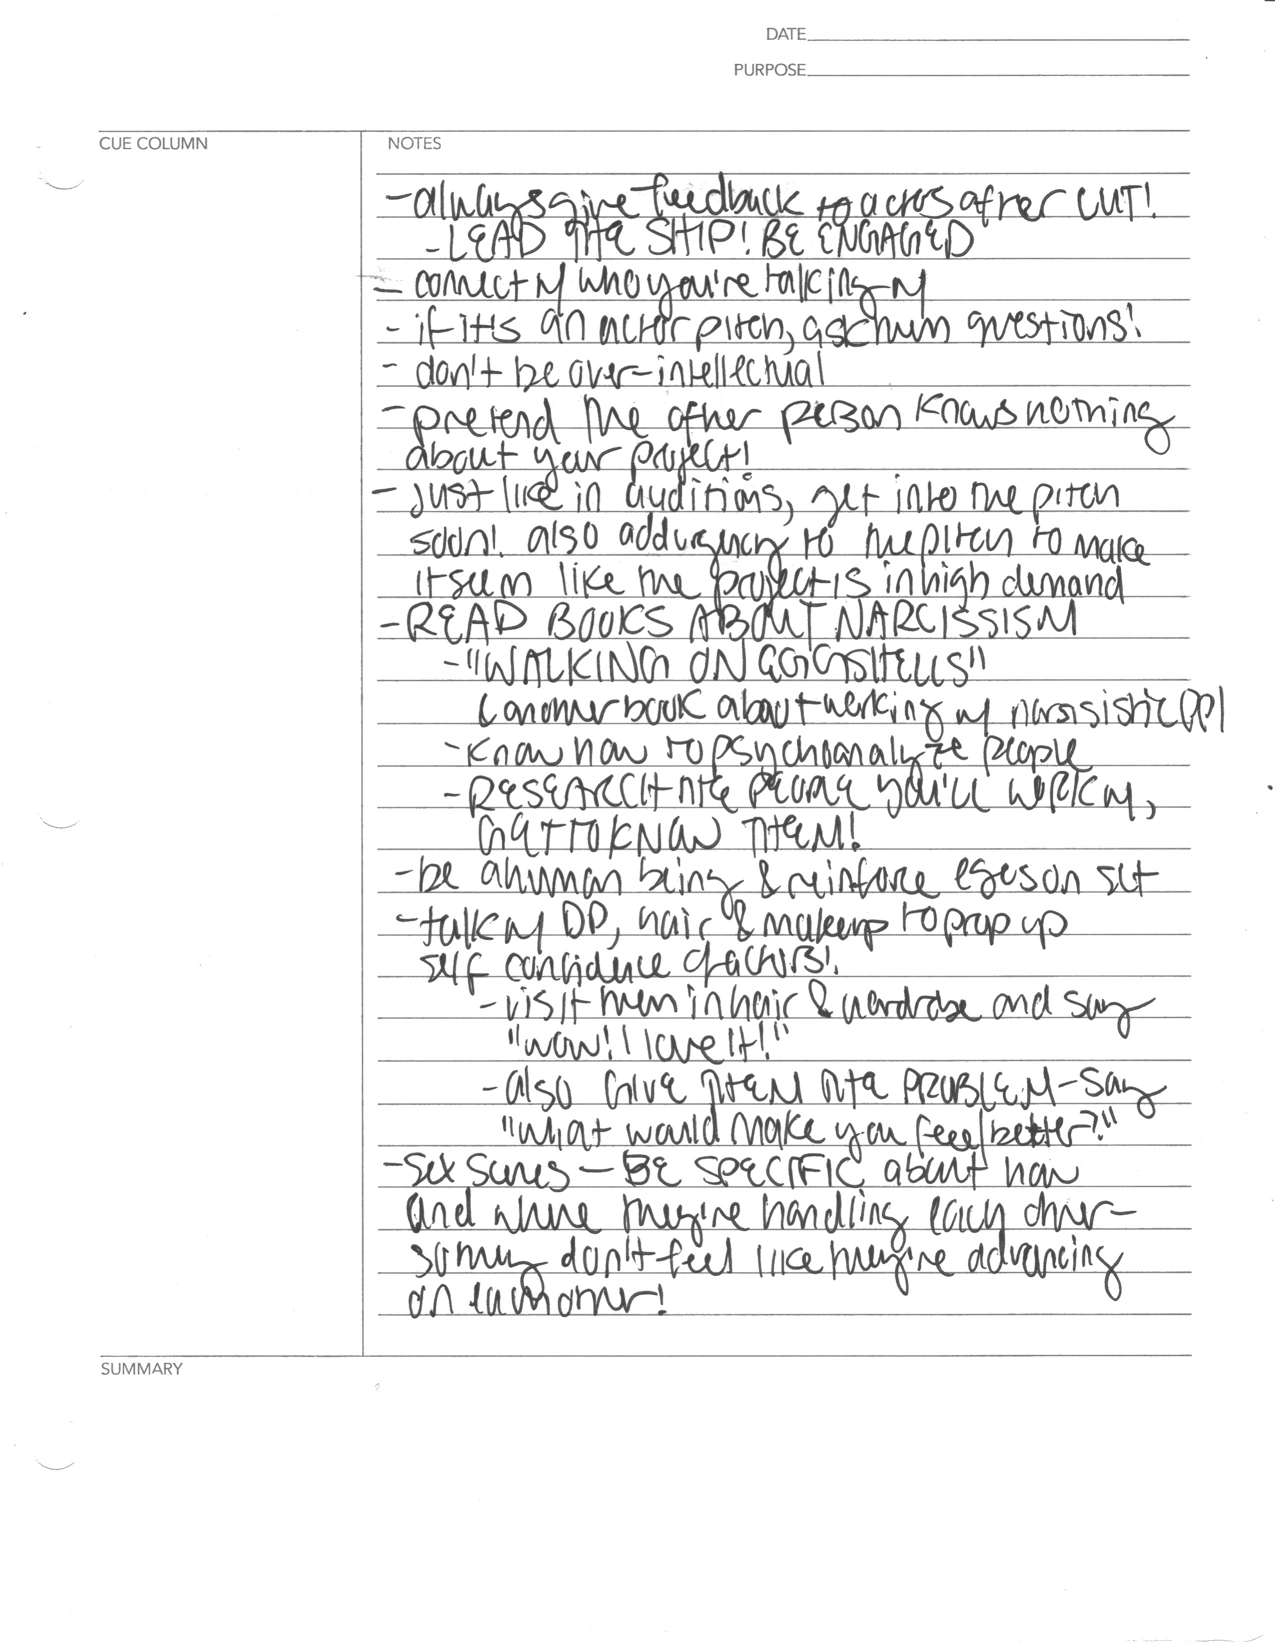 DATE
PURPOSE
CUE COLUMN
NOTES
- always give feedback to actors after CUT!
- LEAD THE SHIP! BE ENGAGED
- connect w/ who you're talking w/
- if it's an actor pitch, ask them questions!
- don't be over-intellectual
- pretend the other person knows nothing
about your project!
- just like in auditions, get into the pitch
soon! also add urgency to the pitch to make
it seem like the project is in high demand
- READ BOOKS ABOUT NARCISSISM
- "WALKING ON EGGSHELLS"
(another book about working w/ narssisistic ppl
- know how to psychoanalyze people
- RESEARCH THE PEOPLE YOU'LL WORK W/,
GET TO KNOW THEM!
- be a human being & reinforce egos on set
- talk w/ DP, hair & makeup to prop up
self confidence of actors!
- visit them in hair & wardrobe and say
"wow! I love it!"
- also GIVE THEM THE PROBLEM - say
"what would make you feel better?"
- sex scenes - BE SPECIFIC about how
and where they're handling each other -
so they don't feel like they're advancing
on each other!
SUMMARY